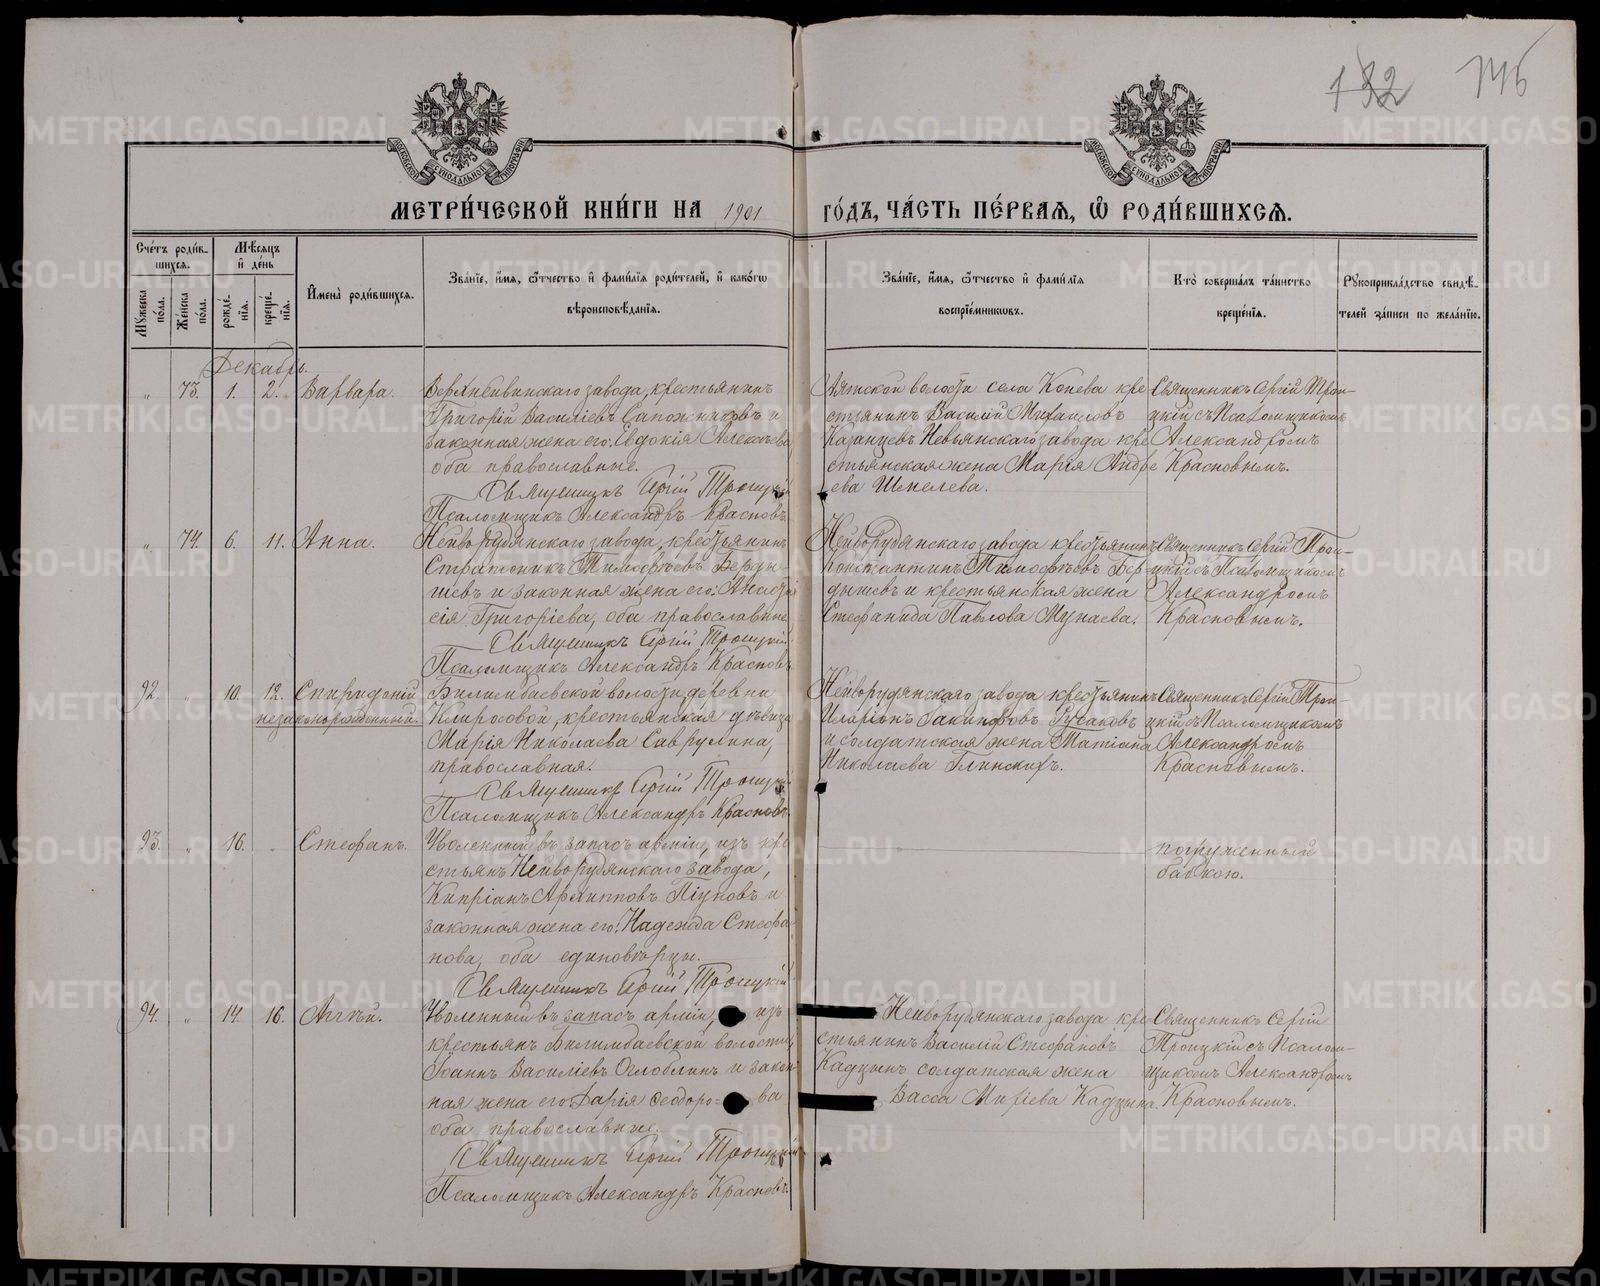 132 146
МЕТРИ́ЧЕСКОЙ КНИ́ГИ НА 1901 ГО́ДЪ, ЧА́СТЬ ПЕ́РВАЯ, Ѡ РОДИ́ВШИХСЯ.
Сче́тъ роди́в-
шихся.
Мѣ́сяцъ
и де́нь
Мꙋ́жеска по́ла.
Же́нска по́ла.
рожде́нїя.
креще́нїя.
Имена̀ роди́вшихся.
Зва́нїе, и́мя, ѻ҆́тчество и фами́лїя роди́телей, и како́гѡ
вѣроисповѣ́данїя.
Зва́нїе, и́мя, ѻ҆́тчество и фами́лїя
воспрїе́мникѡвъ.
Кто̀ соверша́лъ та́инство
креще́нїя.
Рꙋкоприкла́дство свидѣ́-
телей за́писи по жела́нїю.
Декабрь
„ 73. 1. 2. Варвара.
Верхнейвинскаго завода, крестьянинъ
Григорій Василіевъ Сапожниковъ и
законная жена его: Евдокія Алексѣева
оба православные.
Священникъ Сергій Троицкій
Псаломщикъ Александръ Красновъ.
Аятской волости села Конева кре
стьянинъ Василій Михаиловъ
Казанцевъ Невьянскаго завода кре
стьянская жена Марія Андре
ева Шмелева.
Священникъ Сергій Трои-
цкій съ Псаломщикомъ
Александромъ
Красновымъ.
„ 74. 6. 11. Анна.
Нейворудянскаго завода, крестьянинъ
Стратоникъ Тимофѣевъ Берды-
шевъ и законная жена его: Анаста
сія Григоріева, оба православные
Священникъ Сергій Троицкій
Псаломщикъ Александръ Красновъ
Нейворудянскаго завода крестьянинъ
Константинъ Тимофѣевъ Бер-
дышевъ и крестьянская жена
Стефанида Павлова Мунаева.
Священникъ Сергій Трои-
цкій съ Псаломщикомъ
Александромъ
Красновымъ.
92. „ 10. 12. Спиридоній
незаконорожденный.
Билимбаевской волости, деревни
Клиросовой, крестьянская дѣвица
Марія Николаева Саврулина,
православная.
Священникъ Сергій Троицкій
Псаломщикъ Александръ Красновъ.
Нейворудянскаго завода крестьянинъ
Иларіонъ Іакинфовъ Гусаковъ
и солдатская жена Татіана
Николаева Глинскихъ.
Священникъ Сергій Трои
цкій съ Псаломщикомъ
Александромъ
Красновымъ.
93. „ 16. „ Стефанъ.
Уволенный въ запасъ арміи, изъ кре
стьянъ Нейворудянскаго завода,
Кипріанъ Архипповъ Піуновъ и
законная жена его: Надежда Стефа
нова, оба единовѣрцы.
Священникъ Сергій Троицкій
погруженный
бабкою.
94. „ 14. 16. Аггѣй.
Уволенный въ запасъ арміи, изъ
крестьянъ Билимбаевской волости,
Іоаннъ Василіевъ Оглоблинъ и закон
ная жена его: Дарія Феодоро- ва
оба православные.
Священникъ Сергій Троицкій
Псаломщикъ Александръ Красновъ.
Нейворудянскаго завода кре
стьянинъ Василій Стефановъ
Кадцынъ солдатская жена
Васса Кадцына.
Священникъ Сергій
Троицкій съ Псалом-
щикомъ Александромъ
Красновымъ.
METRIKI.GASO-URAL.RU